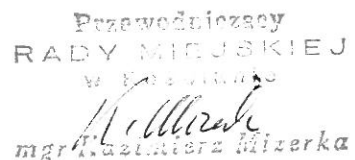 Przewodniczący
RADY MIEJSKIEJ
w
mgr Kazimierz Mizerka